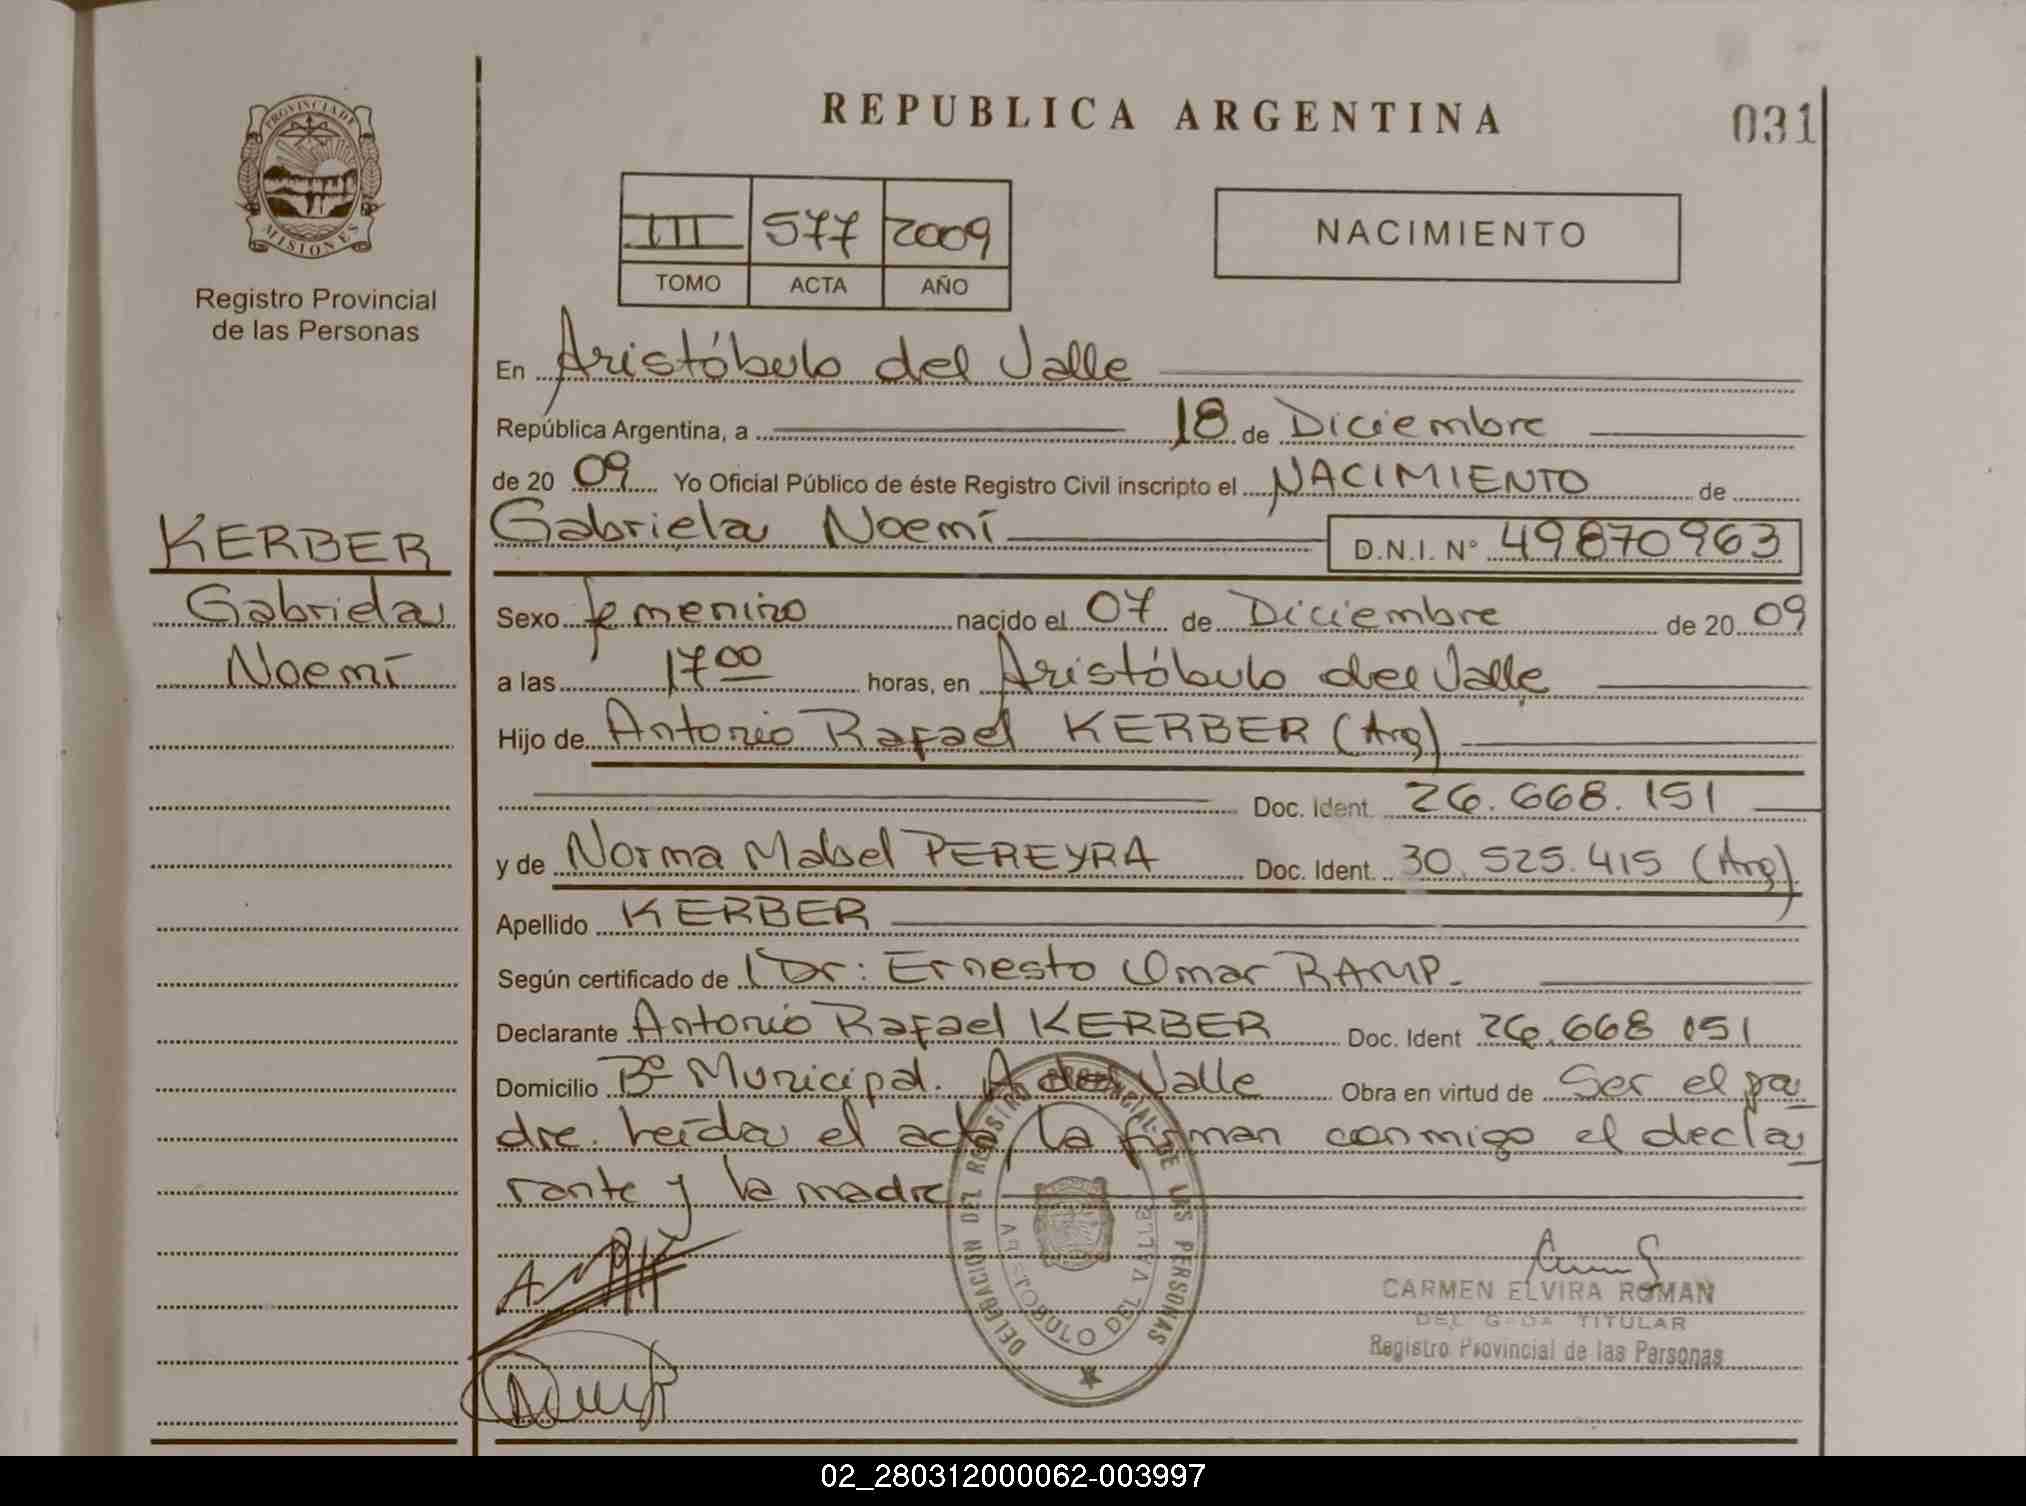 REPUBLICA ARGENTINA
031
PROVINCIA DE
MISIONES
Registro Provincial
de las Personas
III 577 2009
TOMO ACTA AÑO
NACIMIENTO
En Aristóbulo del Valle
República Argentina, a 18 de Diciembre
de 20 09 Yo Oficial Público de éste Registro Civil inscripto el NACIMIENTO de
Gabriela Noemí D.N.I. N° 49870963
KERBER
Gabriela
Noemí
Sexo femenino nacido el 07 de Diciembre de 20 09
a las 17 00 horas, en Aristóbulo del Valle
Hijo de Antonio Rafael KERBER (Arg)
Doc. Ident. 26.668.151
y de Norma Mabel PEREYRA Doc. Ident. 30.525.415 (Arg)
Apellido KERBER
Según certificado de Dr: Ernesto Omar RAMP.
Declarante Antonio Rafael KERBER Doc. Ident 26.668 151
Domicilio Bº Municipal. A. del Valle Obra en virtud de Ser el pa
dre. Leída el acta, la firman conmigo el decla
rante y la madre
DELEGACION DEL REGISTRO PROVINCIAL DE LAS PERSONAS
ARISTOBULO DEL VALLE
CARMEN ELVIRA ROMAN
TITULAR
Registro Provincial de las Personas
02_280312000062-003997